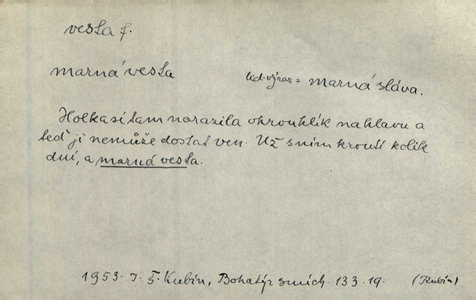 vesta f.
marná vesta lid. výraz = marná sláva.
Holka si tam narazila okrouhlík na hlavu a
teď ji nemůže dostat ven. Už s ním kroutí kolik
dní, a marná vesta.
1953. J. Š. Kubín, Bohatýr smích. 133.19. (Kubín)